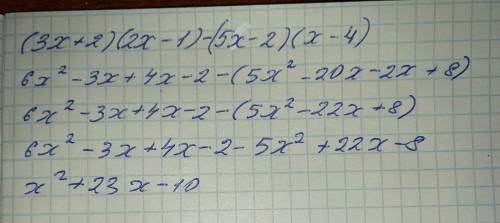 (3x+2)(2x-1)-(5x-2)(x-4)
6x²-3x+4x-2-(5x²-20x-2x+8)
6x²-3x+4x-2-(5x²-22x+8)
6x²-3x+4x-2-5x²+22x-8
x²+23x-10